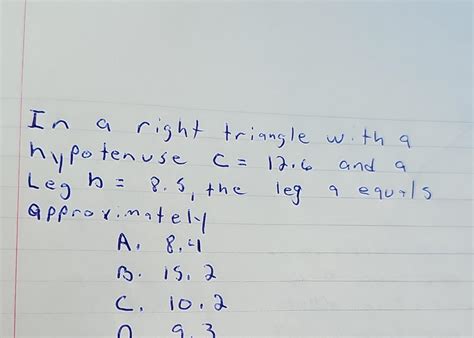 In a right triangle with a
hypotenuse c = 12.6 and a
Leg b = 8.5, the leg a equals
approximately
A. 8.4
B. 15.2
C. 10.2
D 9.3